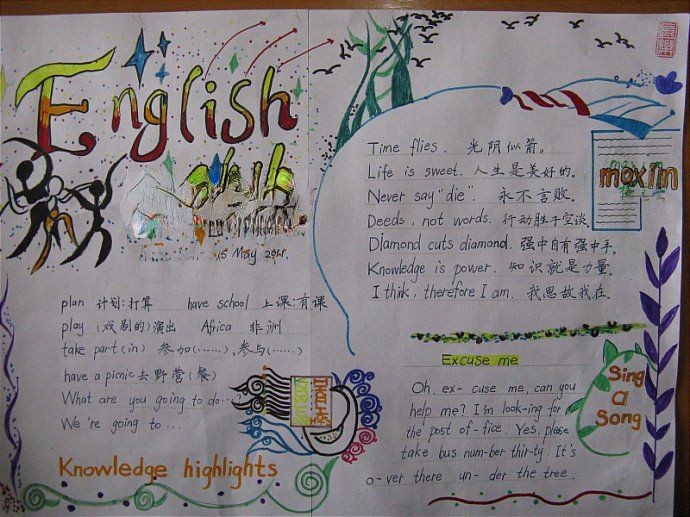 English
15 May
plan 计划:打算 have school 上课:有课
play (戏剧的)演出 Africa 非洲
take part(in) 参加(……),参与(……)
have a picnic 去野营(餐)
What are you going to do...
We're going to ...
Knowledge highlights
Time flies. 光阴似箭。
Life is sweet. 人生是美好的.
Never say "die". 永不言败.
Deeds, not words. 行动胜于空谈.
Dlamond cuts diamond. 强中自有强中手.
Knowledge is power. 知识就是力量.
I thik, therefore I am. 我思故我在.
maxim
Excuse me
Oh, ex- cuse me, can you
help me? I'm look-ing for
the post of-fice. Yes, please
take bus num-ber thir-ty. It's
o-ver there un- der the tree.
Sing
a
Song